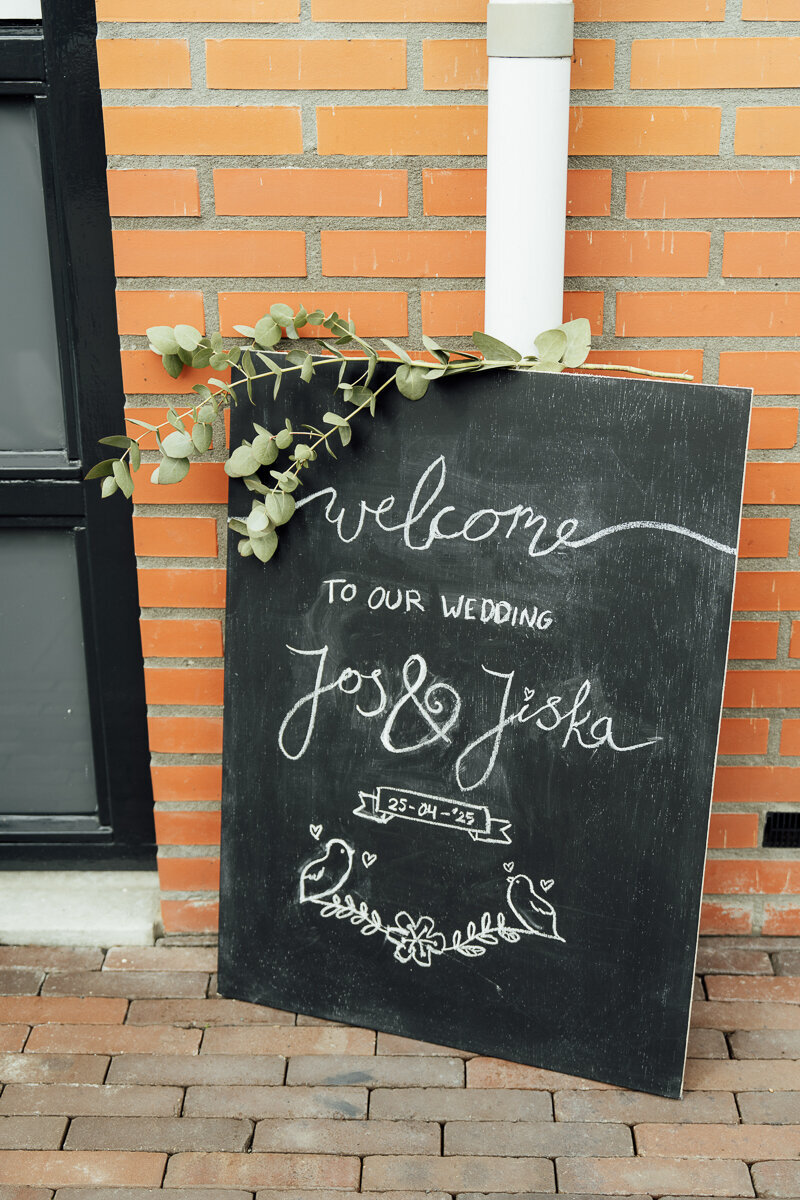 welcome
TO OUR WEDDING
Jos & Jiska
25-04-'25